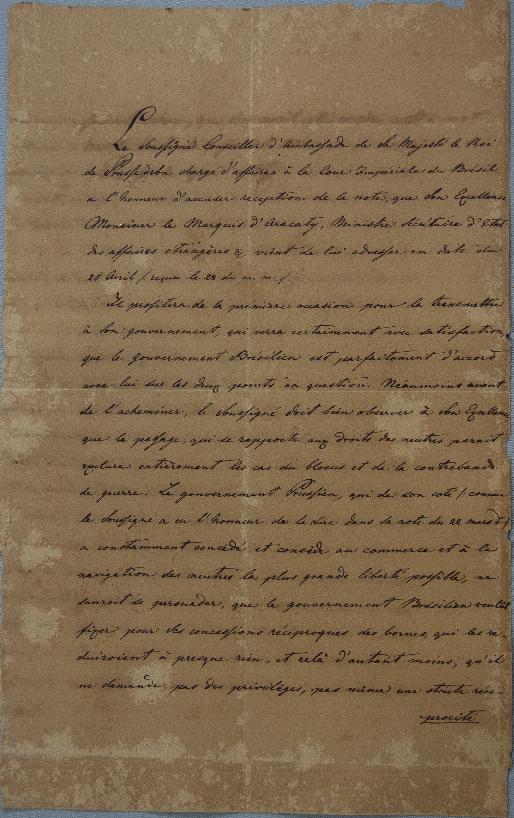 Le Soussigné Conseiller d'Ambassade de Sa Majesté le Roi
de Prusse chargé d'affaires à la Cour Impériale du Brésil
a l'honneur d'accuser reception de la note, que Son Excellence
Monsieur le Marquis d'Aracaty, Ministre Sécrétaire d'Etat
des affaires étrangères &, vient de lui adresser en date du
25 Avril /: reçue le 28 du m. m. :/
Il profitera de la première occasion pour la transmettre
à Son gouvernement, qui verra certainement avec satisfaction
que le gouvernement Brésilien est parfaitement d'accord
avec lui sur les deux points en question. Neanmoins avant
de l'acheminer, le Soussigné doit bien observer à Son Excellence
que le passage, qui se rapporte aux droits des neutres parait
exclure entièrement les cas du blocus et de la contrebande
de guerre. Le gouvernement Prussien, qui de son coté /: comme
le Soussigné a eu l'honneur de le dire dans sa note du 22 mars :/
a constamment concédé et concède au commerce et à la
navigation des neutres la plus grande liberté possible, ne
sauroit se persuader, que le gouvernement Brésilien voulut
fixer pour Ses concessions réciproques des bornes, qui les ré-
duiroient à presque rien, et celà d'autant moins, qu'il
ne demande pas des privilèges, pas même une stricte réci-
procité